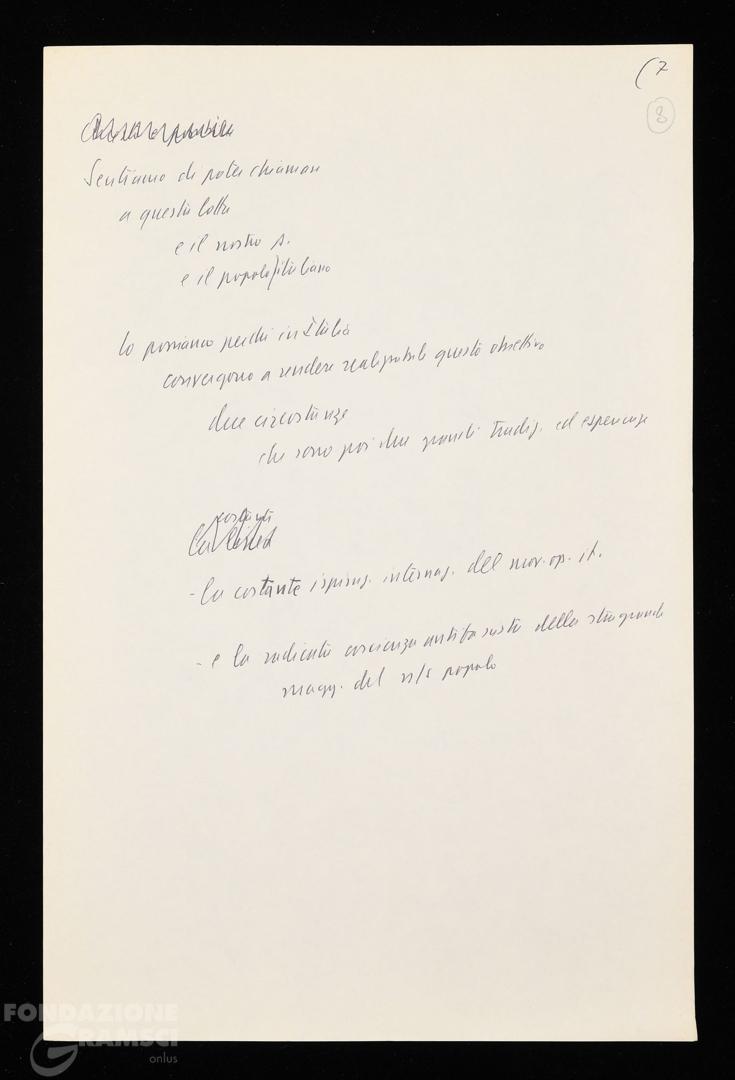 (7
8
Sentiamo di poter chiamare
a questa lotta
e il nostro p.
e il popolo italiano
lo possiamo perché in Italia
convergono a rendere realizzabile questo obiettivo
due circostanze
che sono poi due grandi tradiz. ed esperienze
costante
la
- la costante ispiraz. internaz. del mov. op. it.
- e la radicata coscienza antifascista della stragrande
magg. del n/s popolo
FONDAZIONE
GRAMSCI
onlus